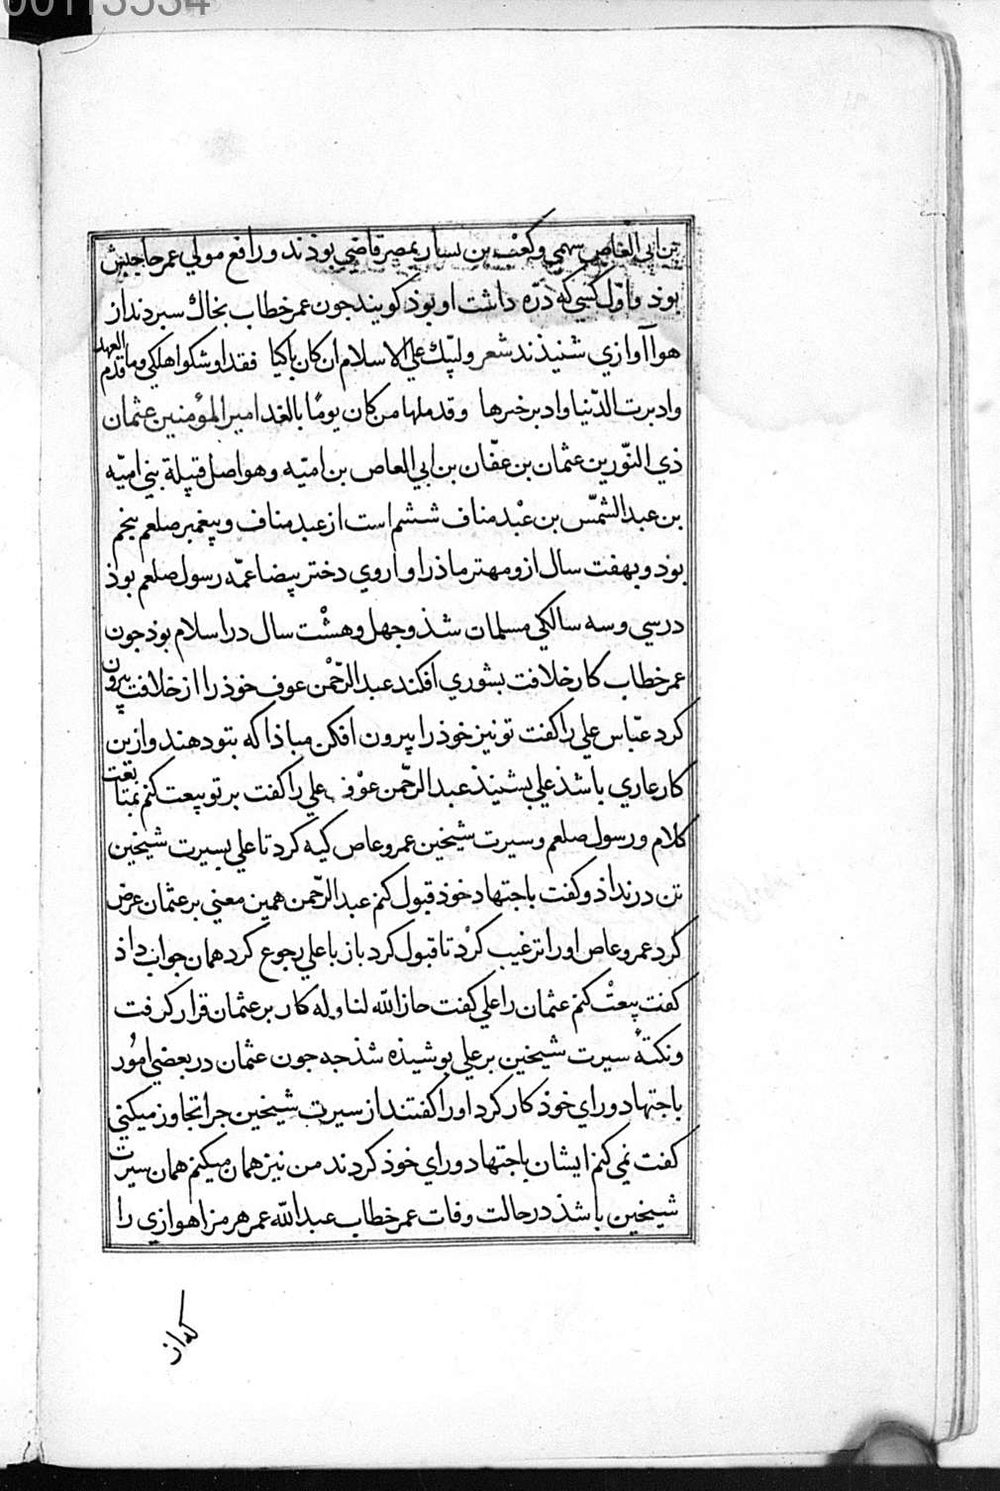 00113534
بن ابي العاص سهمي و كعب بن يسار بمصر قاضي بوذند و رافع مولي عمر حاجبش
بوذ و اوّل كسي كه درّه داشت او بوذ كويند جون عمر خطاب بخاك سبردند از
هوا آوازي شنيذند شعر و لبيك علي الاسلام ان كان باكيا فقد اوشكوا هلكي وما قدم العهد
وادبرت الدّنيا وادبر خيرها وقد ملها من كان يومًا بالغد امير المؤمنين عثمان
ذي النّورين عثمان بن عفّان بن ابي العاص بن اميّه وهو اصل قبيلة بني اميّه
بن عبد الشمّس بن عبْد مناف ششم است از عبد مناف و پيغمبر صلعم پنجم
بوذ و بهفت سال ازو مهتر ماذر او اروي دختر بيضا عمّه رسول صلعم بوذ
در سي و سه سالكي مسلمان شذ و جهل و هشْت سال در اسلام بوذ جون
عمر خطاب كار خلافت بشوري افكند عبد الرّحمْن عوف خوذ را از خلافت بيرون
كرد عبّاس علي را كفت تو نيز خوذ را بيرون افكن مباذا كه بتو دهند و ازين
كار عاري باشذ علي بشنيذ عبد الرّحمن عوْف علي را كفت بر تو بيعت كنم بمتابعت
كلام و رسول صلعم و سيرت شيخين عمرو عاص كيه كرد تا علي بسيرت شيخين
تن در نداذ و كفت باجتهاد خوذ قبول كنم عبد الرّحمن همين معني بر عثمان عرض
كرد عمرو عاص او را ترغيب كرْد تا قبول كرد باز با علي رجوع كرد همان جواب داذ
كفت بيعتْ كنم عثمان را علي كفت حاز اللّه لنا وله كار بر عثمان قرار كرفت
و نكتهٔ سيرت شيخين بر علي بوشيذه شذ جه جون عثمان در بعضي امُور
باجتهاد و راي خوذ كار كرد او را كفتند از سيرت شيخين جرا تجاوز ميكني
كفت نمي كنم ايشان باجتهاد و راي خوذ كردند من نيز همان ميكنم همان سيرت
شيخين باشذ در حالت وفات عمر خطاب عبد اللّه عمر هرمزا هوازي را
كه از